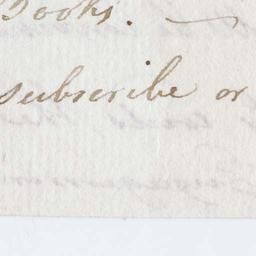 Books. —
subscribe or